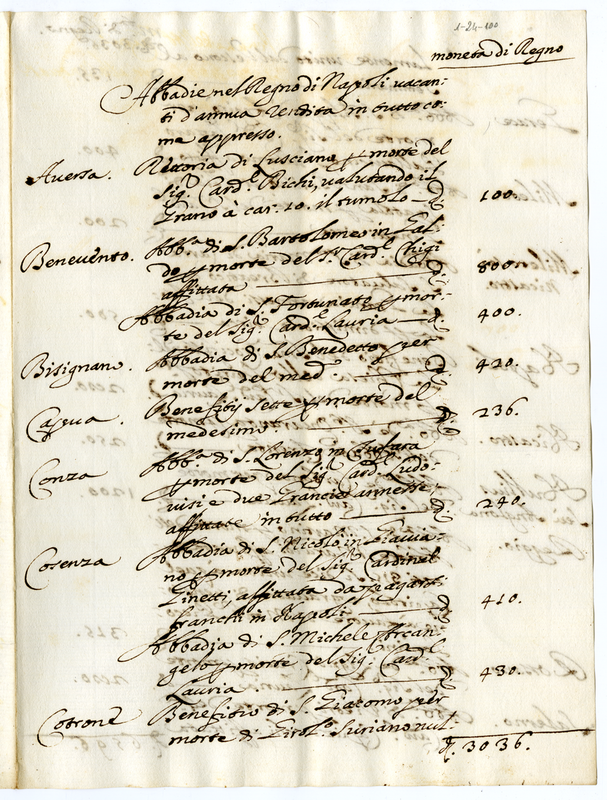 1-24-100
moneta di Regno
Abbadie nel Regno di Napoli vacan:
ti d'annua rendita in tutto co:
me appresso.
Aversa. Rettoria di Lusciano p morte del
Sig.r Card.l Bichi, valutando il
Grano à car. 10. il tumolo — d. 100.
Benevento. Abb.a di S. Bartolomeo in Gal:
do p morte del S.r Card.l Chigi
affittata — d. 800.
Abbadia di S. Fortunato p mor:
te del Sig.r Card.le Lauria — d. 400.
Bisignano. Abbadia di S. Benedetto per
morte del med.o — d. 420.
Capua. Benefitij sette p morte del
medesimo. — d. 236.
Conza Abb.a di S. Lorenzo in
p morte del Sig.r Card. Ludo:
visi e due Grancie annesse,
affittate in tutto — d. 240.
Cosenza Abbadia di S. Nicolò in
no p morte del Sig.r Cardinal
Ginetti, affittata da pagarsi
franchi in Napoli — d. 410.
Abbadia di S. Michele Arcan:
gelo p morte del Sig.r Card.l
Lauria. — d. 430.
Cotrone Benefitio di S. Giacomo per
morte di Girol.o Suriano nul.
d. 3036.